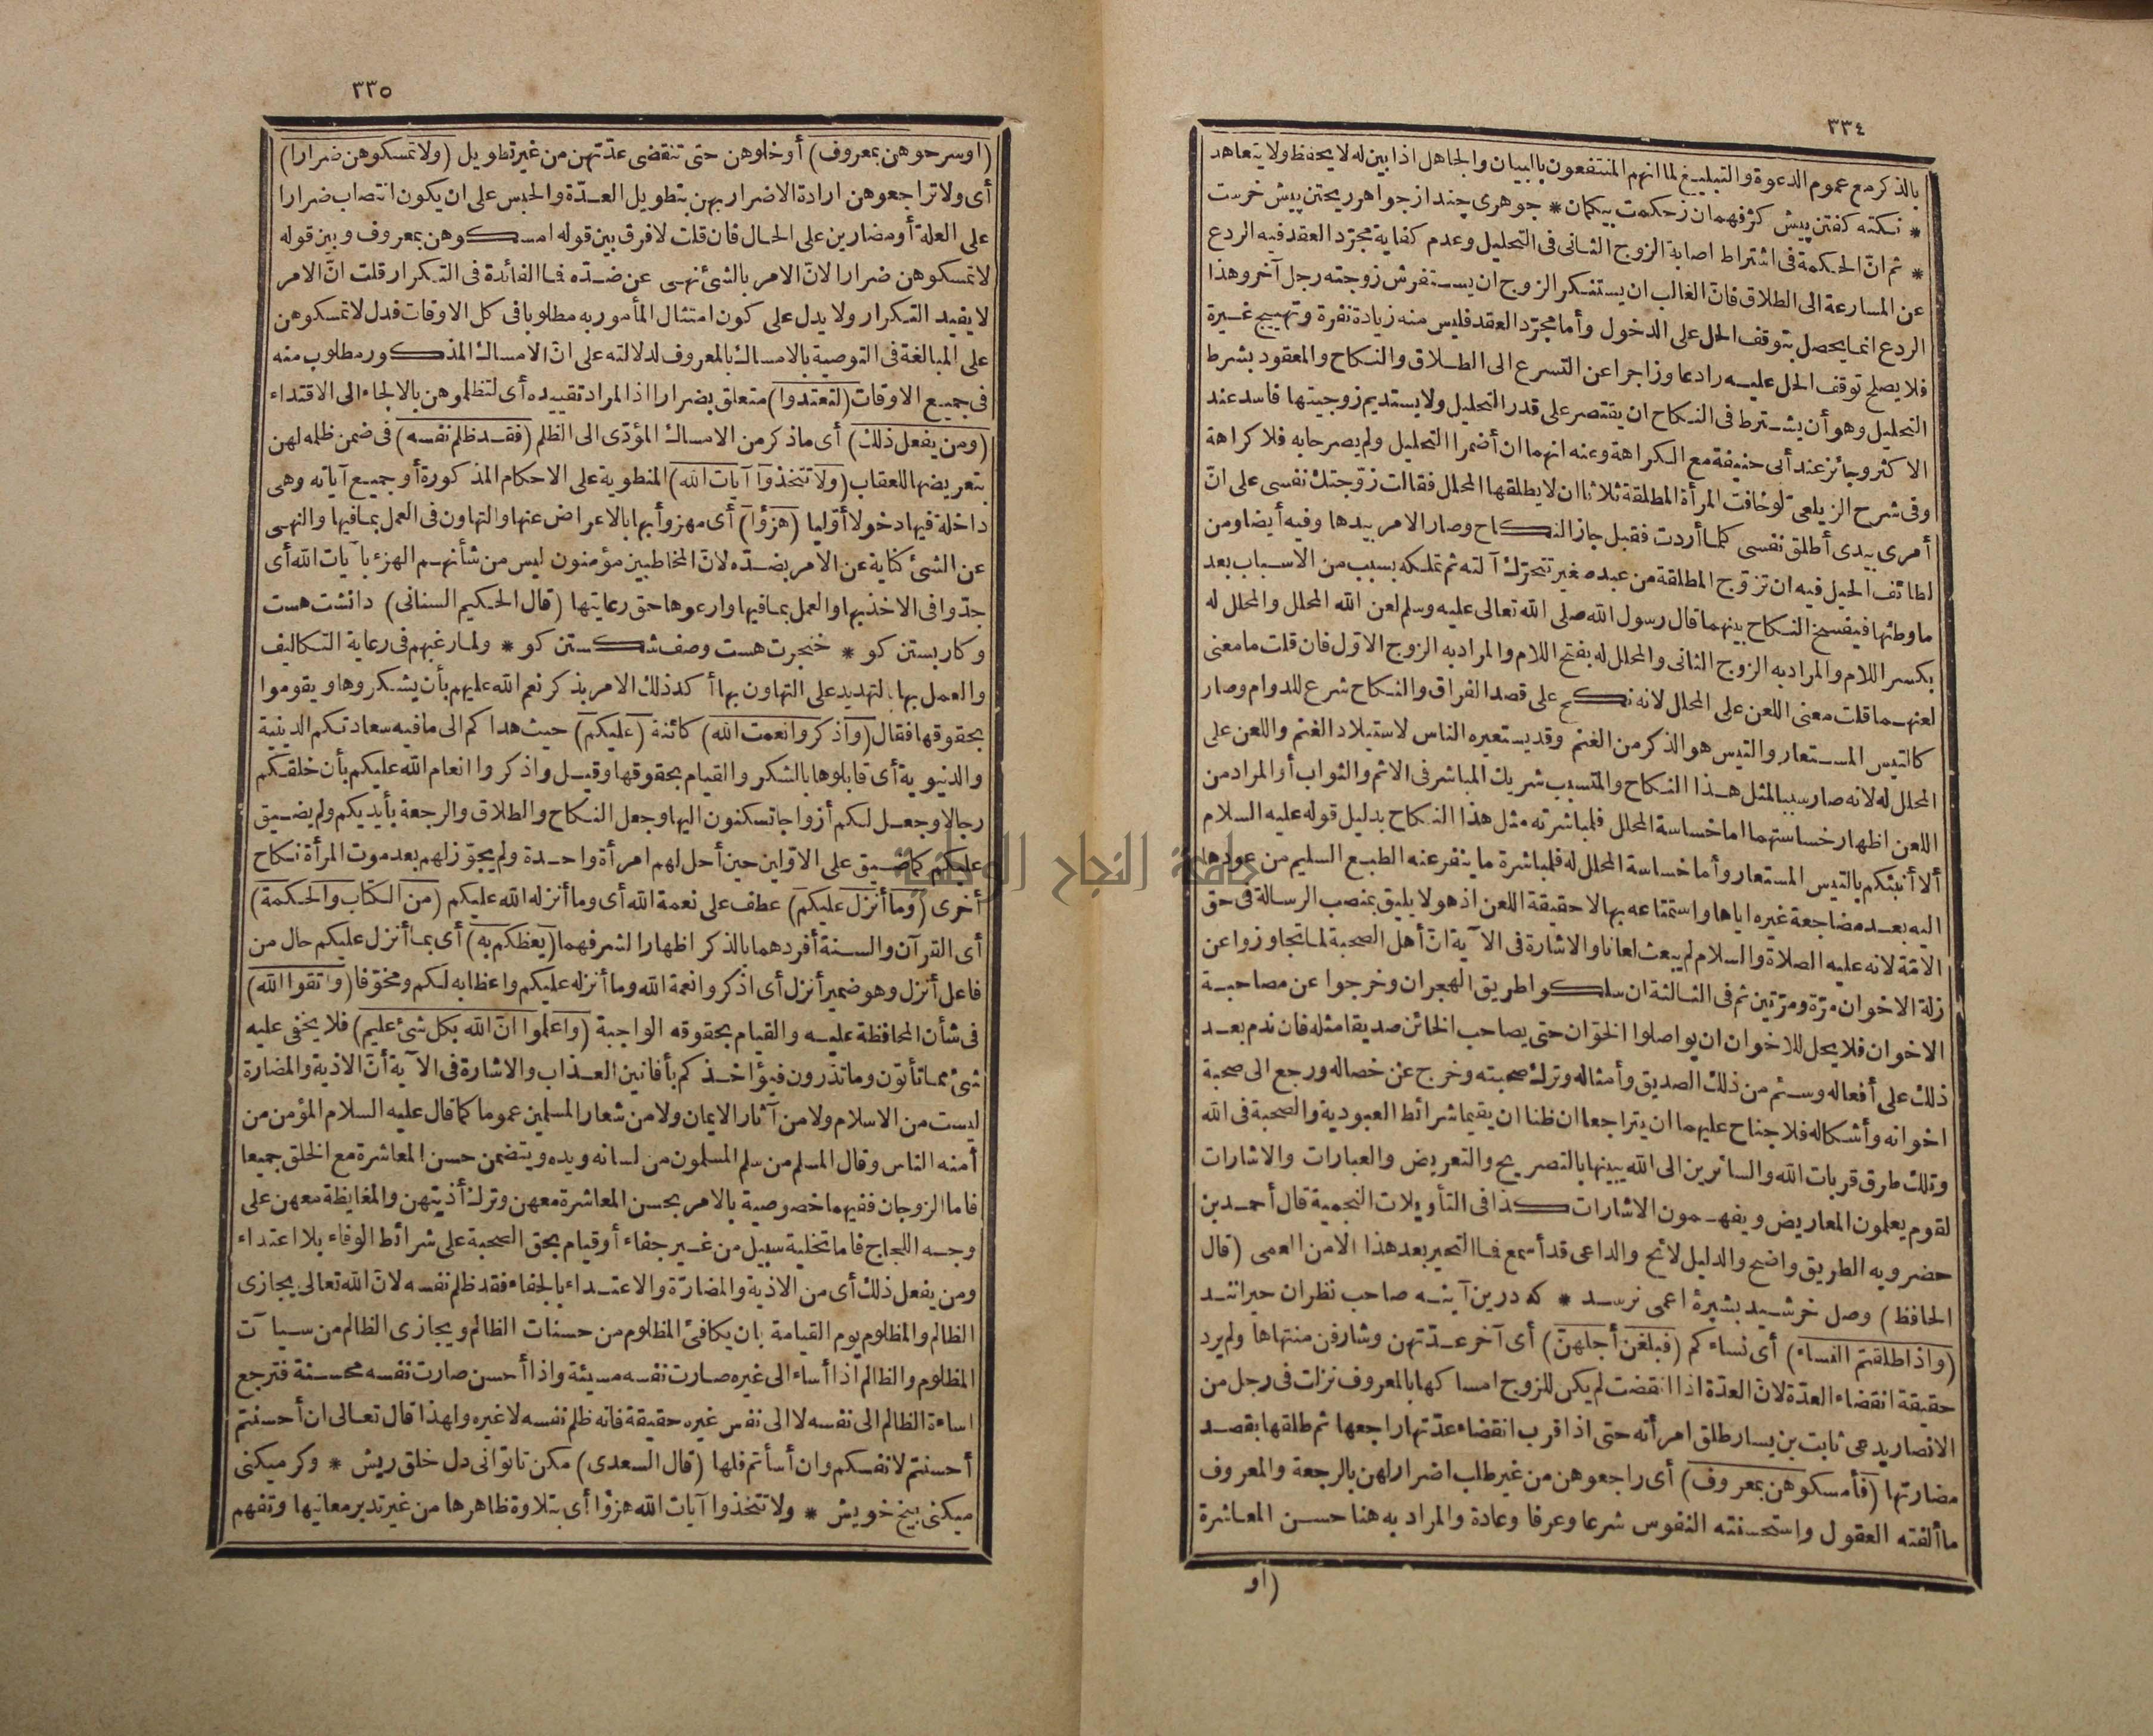 ٣٣٤
بالذكر مع عموم الدعوة والتبليغ لما انهم المنتفعون بالبيان والجاهل اذا بين له لا يحفظ ولا يتعاهد
* نكته كفتن پيش كژ فهمان ز حكمت بيكمان * جوهرى چند از جواهر ريختن پيش خرست
* ثم انّ الحكمة فى اشتراط اصابة الزوج الثانى فى التحليل وعدم كفاية مجرّد العقد فيه الردع
عن المسارعة الى الطلاق فانّ الغالب ان يستنكر الزوج ان يستفرش زوجته رجل آخر وهذا
الردع انما يحصل بتوقف الحل على الدخول وأما مجرّد العقد فليس منه زيادة نفرة وتهييج غيرة
فلا يصلح توقف الحل عليه رادعا وزاجرا عن التسرع الى الطلاق والنكاح والمعقود بشرط
التحليل وهو أن يشترط فى النكاح ان يقتصر على قدر التحليل ولا يستديم زوجيتها فاسد عند
الاكثر وجائز عند أبى حنيفة مع الكراهة وعنه انهما ان أضمرا التحليل ولم يصرحا به فلا كراهة
وفى شرح الزيلعى لو خافت المرأة المطلقة ثلاثا ان لا يطلقها المحلل فقالت زوّجتك نفسى على انّ
أمرى بيدى أطلق نفسى كلما أردت فقبل جاز النكاح وصار الامر بيدها وفيه أيضا ومن
لطائف الحيل فيه ان تزوّج المطلقة من عبد صغير تتحرّك آلته ثم تملكه بسبب من الاسباب بعد
ما وطئها فيفسخ النكاح بينهما قال رسول الله صلى الله تعالى عليه وسلم لعن الله المحلل والمحلل له
بكسر اللام والمراد به الزوج الثانى والمحلل له بفتح اللام والمراد به الزوج الاوّل فان قلت ما معنى
لعنهما قلت معنى اللعن على المحلل لانه نكح على قصد الفراق والنكاح شرع للدوام وصار
كالتيس المستعار والتيس هو الذكر من الغنم وقد يستعيره الناس لاستيلاد الغنم واللعن على
المحلل له لانه صار سببا لمثل هذا النكاح والمتسبب شريك المباشر فى الاثم والثواب أو المراد من
اللعن اظهار خساستهما اما خساسة المحلل فلمباشرته مثل هذا النكاح بدليل قوله عليه السلام
ألا أنبئكم بالتيس المستعار وأما خساسة المحلل له فلمباشرة ما ينفر عنه الطبع السليم من عودها
اليه بعد مضاجعة غيره اياها واستمتاعه بها لا حقيقة اللعن اذ هو لا يليق بمنصب الرسالة فى حق
الامّة لانه عليه الصلاة والسلام لم يبعث لعانا والاشارة فى الآية انّ أهل الصحبة لما تجاوزوا عن
زلة الاخوان مرّة ومرّتين ثم فى الثالثة ان سلكوا طريق الهجران وخرجوا عن مصاحبة
الاخوان فلا يحل للاخوان ان يواصلوا الخوّان حتى يصاحب الخائن صديقا مثله فان ندم بعد
ذلك على أفعاله وسئم من ذلك الصديق وأمثاله وترك صحبته وخرج عن خصاله ورجع الى صحبة
اخوانه وأشكاله فلا جناح عليهما ان يتراجعا ان ظنا ان يقيما شرائط العبودية والصحبة فى الله
وتلك طرق قربات الله والسائرين الى الله يبينها بالتصريح والتعريض والعبارات والاشارات
لقوم يعلمون المعاريض ويفهمون الاشارات كذا فى التأويلات النجمية قال أحمد بن
حضرويه الطريق واضح والدليل لائح والداعى قد أسمع فما التحير بعد هذا الا من العمى (قال
الحافظ) وصل خرشيد بشپرۀ اعمى نرسد * كه درين آينه صاحب نظران حيرانند
(واذا طلقتم النساء) أى نساءكم (فبلغن أجلهنّ) أى آخر عدّتهن وشارفن منتهاها ولم يرد
حقيقة انقضاء العدّة لانّ العدّة اذا انقضت لم يكن للزوج امساكها بالمعروف نزلت فى رجل من
الانصار يدعى ثابت بن يسار طلق امرأته حتى اذا قرب انقضاء عدّتها راجعها ثم طلقها بقصد
مضارتها (فأمسكوهن بمعروف) أى راجعوهن من غير طلب اضرار لهن بالرجعة والمعروف
ما ألفته العقول واستحسنته النفوس شرعا وعرفا وعادة والمراد به هنا حسن المعاشرة
(او
٣٣٥
(اوسرحوهن بمعروف) أو خلوهن حتى تنقضى عدّتهن من غير تطويل (ولا تمسكوهن ضرارا)
أى ولا تراجعوهن ارادة الاضرار بهن بتطويل العدّة والحبس على ان يكون انتصاب ضرارا
على العلة أو مضارين على الحال فان قلت لا فرق بين قوله امسكوهن بمعروف وبين قوله
لا تمسكوهن ضرارا لانّ الامر بالشئ نهى عن ضدّه فما الفائدة فى التكرار قلت انّ الامر
لا يفيد التكرار ولا يدل على كون امتثال المأمور به مطلوبا فى كل الاوقات فدل لا تمسكوهن
على المبالغة فى التوصية بالامساك بالمعروف لدلالته على انّ الامساك المذكور مطلوب منه
فى جميع الاوقات (لتعتدوا) متعلق بضرارا اذ المراد تقييده أى لتظلموهن بالالجاء الى الاقتداء
(ومن يفعل ذلك) أى ما ذكر من الامساك المؤدّى الى الظلم (فقد ظلم نفسه) فى ضمن ظلمه لهن
بتعريضها للعقاب (ولا تتخذوا آيات الله) المنطوية على الاحكام المذكورة أو جميع آياته وهى
داخلة فيها دخولا أوّليا (هزؤا) أى مهزوأ بها بالاعراض عنها والتهاون فى العمل بما فيها والنهى
عن الشئ كناية عن الامر بضدّه لانّ المخاطبين مؤمنون ليس من شأنهم الهزء بآيات الله أى
جدّوا فى الاخذ بها والعمل بما فيها وارعوها حق رعايتها (قال الحكيم السنانى) دانشت هست
وكار بستن كو * خنجرت هست وصف شكستن كو * ولما رغبهم فى رعاية التكاليف
والعمل بها بالتهديد على التهاون بها أكد ذلك الامر بذكر نعم الله عليهم بأن يشكروها ويقوموا
بحقوقها فقال (واذكروا نعمت الله) كائنة (عليكم) حيث هداكم الى ما فيه سعادتكم الدينية
والدنيوية أى قابلوها بالشكر والقيام بحقوقها وقيل واذكروا انعام الله عليكم بأن خلقكم
رجالا وجعل لكم أزواجا تسكنون اليها وجعل النكاح والطلاق والرجعة بأيديكم ولم يضيق
عليكم كما ضيق على الاوّلين حين أحل لهم امرأة واحدة ولم يجوّز لهم بعد موت المرأة نكاح
أخرى (وما أنزل عليكم) عطف على نعمة الله أى وما أنزله الله عليكم (من الكتاب والحكمة)
أى القرآن والسنة أفردهما بالذكر اظهارا لشرفهما (يعظكم به) أى بما أنزل عليكم حال من
فاعل أنزل وهو ضمير أنزل أى اذكروا نعمة الله وما أنزله عليكم واعظا به لكم ومخوّفا (واتقوا الله)
فى شأن المحافظة عليه والقيام بحقوقه الواجبة (واعلموا انّ الله بكل شئ عليم) فلا يخفى عليه
شئ مما تأتون وما تذرون فيؤاخذكم بأفانين العذاب والاشارة فى الآية أنّ الاذية والمضارة
ليست من الاسلام ولا من آثار الايمان ولا من شعار المسلمين عموما كما قال عليه السلام المؤمن من
أمنه الناس وقال المسلم من سلم المسلمون من لسانه ويده ويتضمن حسن المعاشرة مع الخلق جميعا
فاما الزوجان ففيهما خصوصية بالامر بحسن المعاشرة معهن وترك أذيتهن والمغايظة معهن على
وجه اللجاج فاما تخلية سبيل من غير جفاء أو قيام بحق الصحبة على شرائط الوفاء بلا اعتداء
ومن يفعل ذلك أى من الاذية والمضارّة والاعتداء بالجفاء فقد ظلم نفسه لانّ الله تعالى يجازى
الظالم والمظلوم يوم القيامة بان يكافئ المظلوم من حسنات الظالم ويجازى الظالم من سيآت
المظلوم والظالم اذا أساء الى غيره صارت نفسه مسيئة واذا أحسن صارت نفسه محسنة فترجع
اساءة الظالم الى نفسه لا الى نفس غيره حقيقة فانه ظلم نفسه لا غيره ولهذا قال تعالى ان أحسنتم
أحسنتم لانفسكم وان أسأتم فلها (قال السعدى) مكن تا توانى دل خلق ريش * وكر ميكنى
ميكنى بيخ خويش * ولا تتخذوا آيات الله هزؤا أى بتلاوة ظاهرها من غير تدبر معانيها وتفهم
جامعة النجاح الوطنية